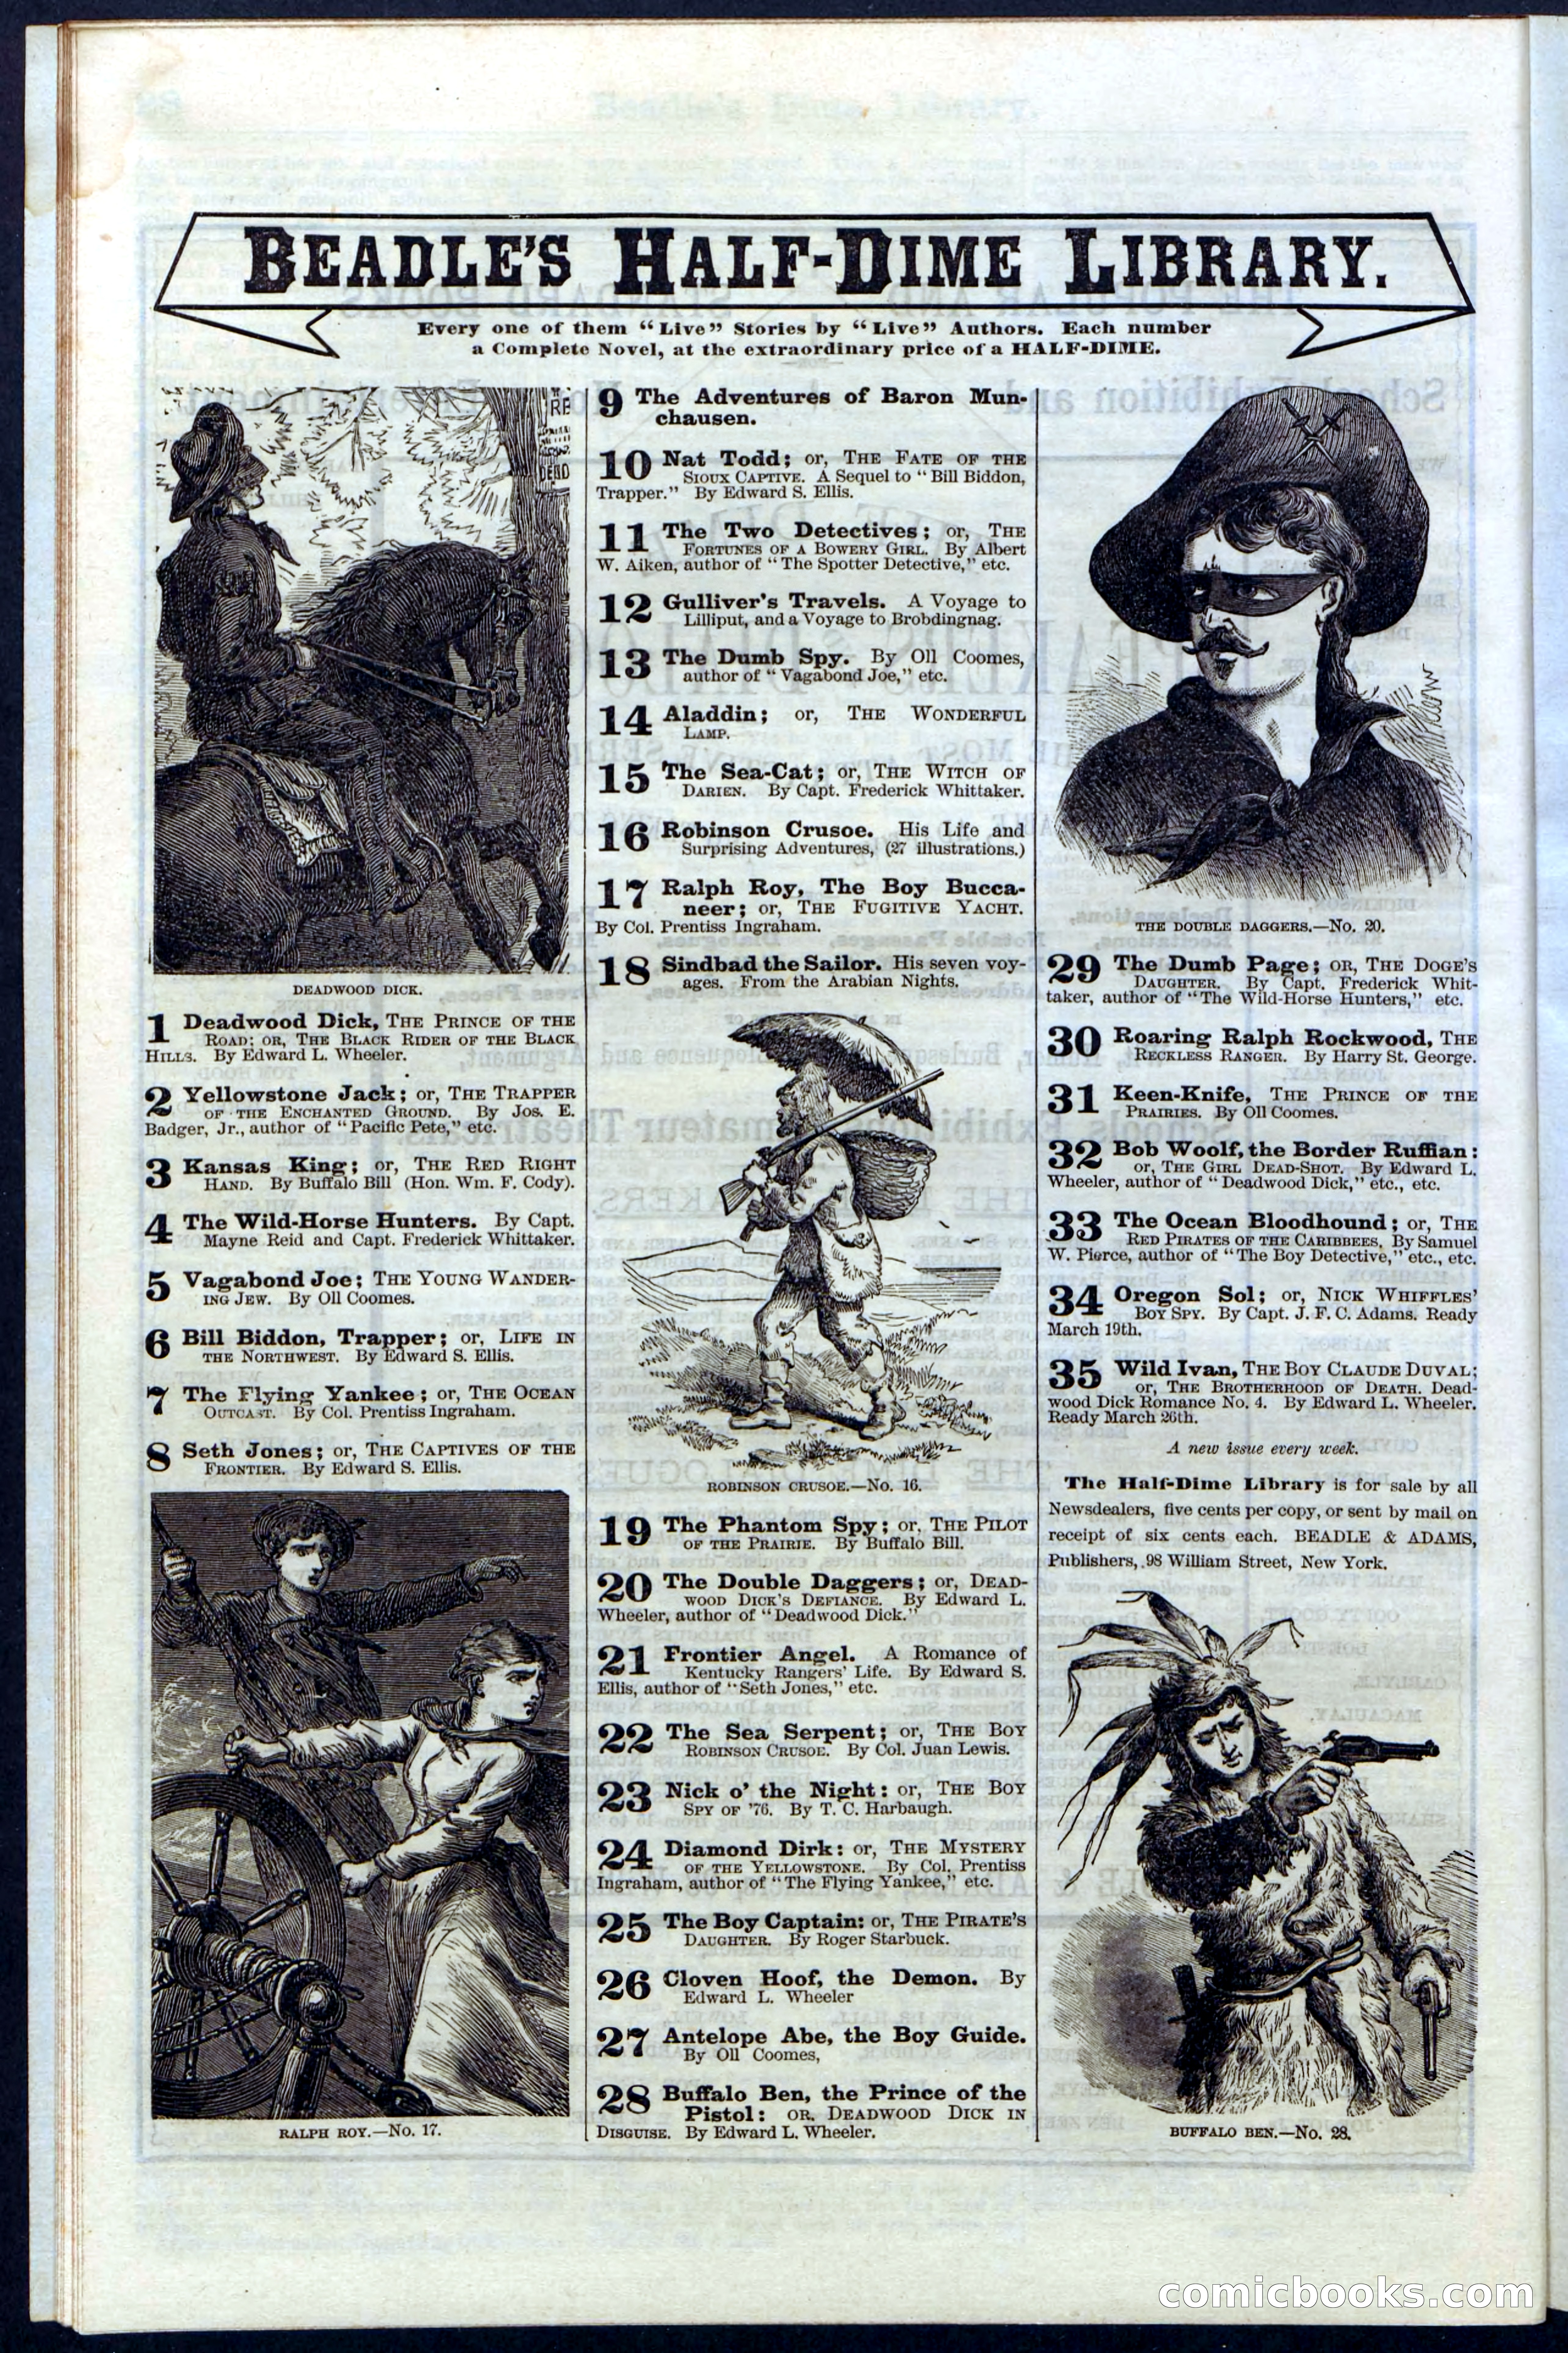 BEADLE'S HALF-DIME LIBRARY.
Every one of them “Live” Stories by “Live” Authors. Each number
a Complete Novel, at the extraordinary price of a HALF-DIME.
DEADWOOD DICK.
1 Deadwood Dick, THE PRINCE OF THE
ROAD: OR, THE BLACK RIDER OF THE BLACK
HILLS. By Edward L. Wheeler.
2 Yellowstone Jack; or, THE TRAPPER
OF THE ENCHANTED GROUND. By Jos. E.
Badger, Jr., author of “Pacific Pete,” etc.
3 Kansas King; or, THE RED RIGHT
HAND. By Buffalo Bill (Hon. Wm. F. Cody).
4 The Wild-Horse Hunters. By Capt.
Mayne Reid and Capt. Frederick Whittaker.
5 Vagabond Joe; THE YOUNG WANDER-
ING JEW. By Oll Coomes.
6 Bill Biddon, Trapper; or, LIFE IN
THE NORTHWEST. By Edward S. Ellis.
7 The Flying Yankee; or, THE OCEAN
OUTCAST. By Col. Prentiss Ingraham.
8 Seth Jones; or, THE CAPTIVES OF THE
FRONTIER. By Edward S. Ellis.
RALPH ROY.—No. 17.
9 The Adventures of Baron Mun-
chausen.
10 Nat Todd; or, THE FATE OF THE
SIOUX CAPTIVE. A Sequel to “Bill Biddon,
Trapper.” By Edward S. Ellis.
11 The Two Detectives; or, THE
FORTUNES OF A BOWERY GIRL. By Albert
W. Aiken, author of “The Spotter Detective,” etc.
12 Gulliver's Travels. A Voyage to
Lilliput, and a Voyage to Brobdingnag.
13 The Dumb Spy. By Oll Coomes,
author of “Vagabond Joe,” etc.
14 Aladdin; or, THE WONDERFUL
LAMP.
15 The Sea-Cat; or, THE WITCH OF
DARIEN. By Capt. Frederick Whittaker.
16 Robinson Crusoe. His Life and
Surprising Adventures, (27 illustrations.)
17 Ralph Roy, The Boy Bucca-
neer; or, THE FUGITIVE YACHT.
By Col. Prentiss Ingraham.
18 Sindbad the Sailor. His seven voy-
ages. From the Arabian Nights.
ROBINSON CRUSOE.—No. 16.
19 The Phantom Spy; or, THE PILOT
OF THE PRAIRIE. By Buffalo Bill.
20 The Double Daggers; or, DEAD-
WOOD DICK'S DEFIANCE. By Edward L.
Wheeler, author of “Deadwood Dick.”
21 Frontier Angel. A Romance of
Kentucky Rangers' Life. By Edward S.
Ellis, author of “Seth Jones,” etc.
22 The Sea Serpent; or, THE BOY
ROBINSON CRUSOE. By Col. Juan Lewis.
23 Nick o' the Night: or, THE BOY
SPY OF '76. By T. C. Harbaugh.
24 Diamond Dirk: or, THE MYSTERY
OF THE YELLOWSTONE. By Col. Prentiss
Ingraham, author of “The Flying Yankee,” etc.
25 The Boy Captain: or, THE PIRATE'S
DAUGHTER. By Roger Starbuck.
26 Cloven Hoof, the Demon. By
Edward L. Wheeler
27 Antelope Abe, the Boy Guide.
By Oll Coomes,
28 Buffalo Ben, the Prince of the
Pistol: OR, DEADWOOD DICK IN
DISGUISE. By Edward L. Wheeler.
THE DOUBLE DAGGERS.—No. 20.
29 The Dumb Page; OR, THE DOGE'S
DAUGHTER. By Capt. Frederick Whit-
taker, author of “The Wild-Horse Hunters,” etc.
30 Roaring Ralph Rockwood, THE
RECKLESS RANGER. By Harry St. George.
31 Keen-Knife, THE PRINCE OF THE
PRAIRIES. By Oll Coomes.
32 Bob Woolf, the Border Ruffian:
or, THE GIRL DEAD-SHOT. By Edward L.
Wheeler, author of “Deadwood Dick,” etc., etc.
33 The Ocean Bloodhound; or, THE
RED PIRATES OF THE CARIBBEES. By Samuel
W. Pierce, author of “The Boy Detective,” etc., etc.
34 Oregon Sol; or, NICK WHIFFLES'
BOY SPY. By Capt. J. F. C. Adams. Ready
March 19th.
35 Wild Ivan, THE BOY CLAUDE DUVAL;
or, THE BROTHERHOOD OF DEATH. Dead-
wood Dick Romance No. 4. By Edward L. Wheeler.
Ready March 26th.
A new issue every week.
The Half-Dime Library is for sale by all
Newsdealers, five cents per copy, or sent by mail on
receipt of six cents each. BEADLE & ADAMS,
Publishers, 98 William Street, New York.
BUFFALO BEN.—No. 28.
comicbooks.com